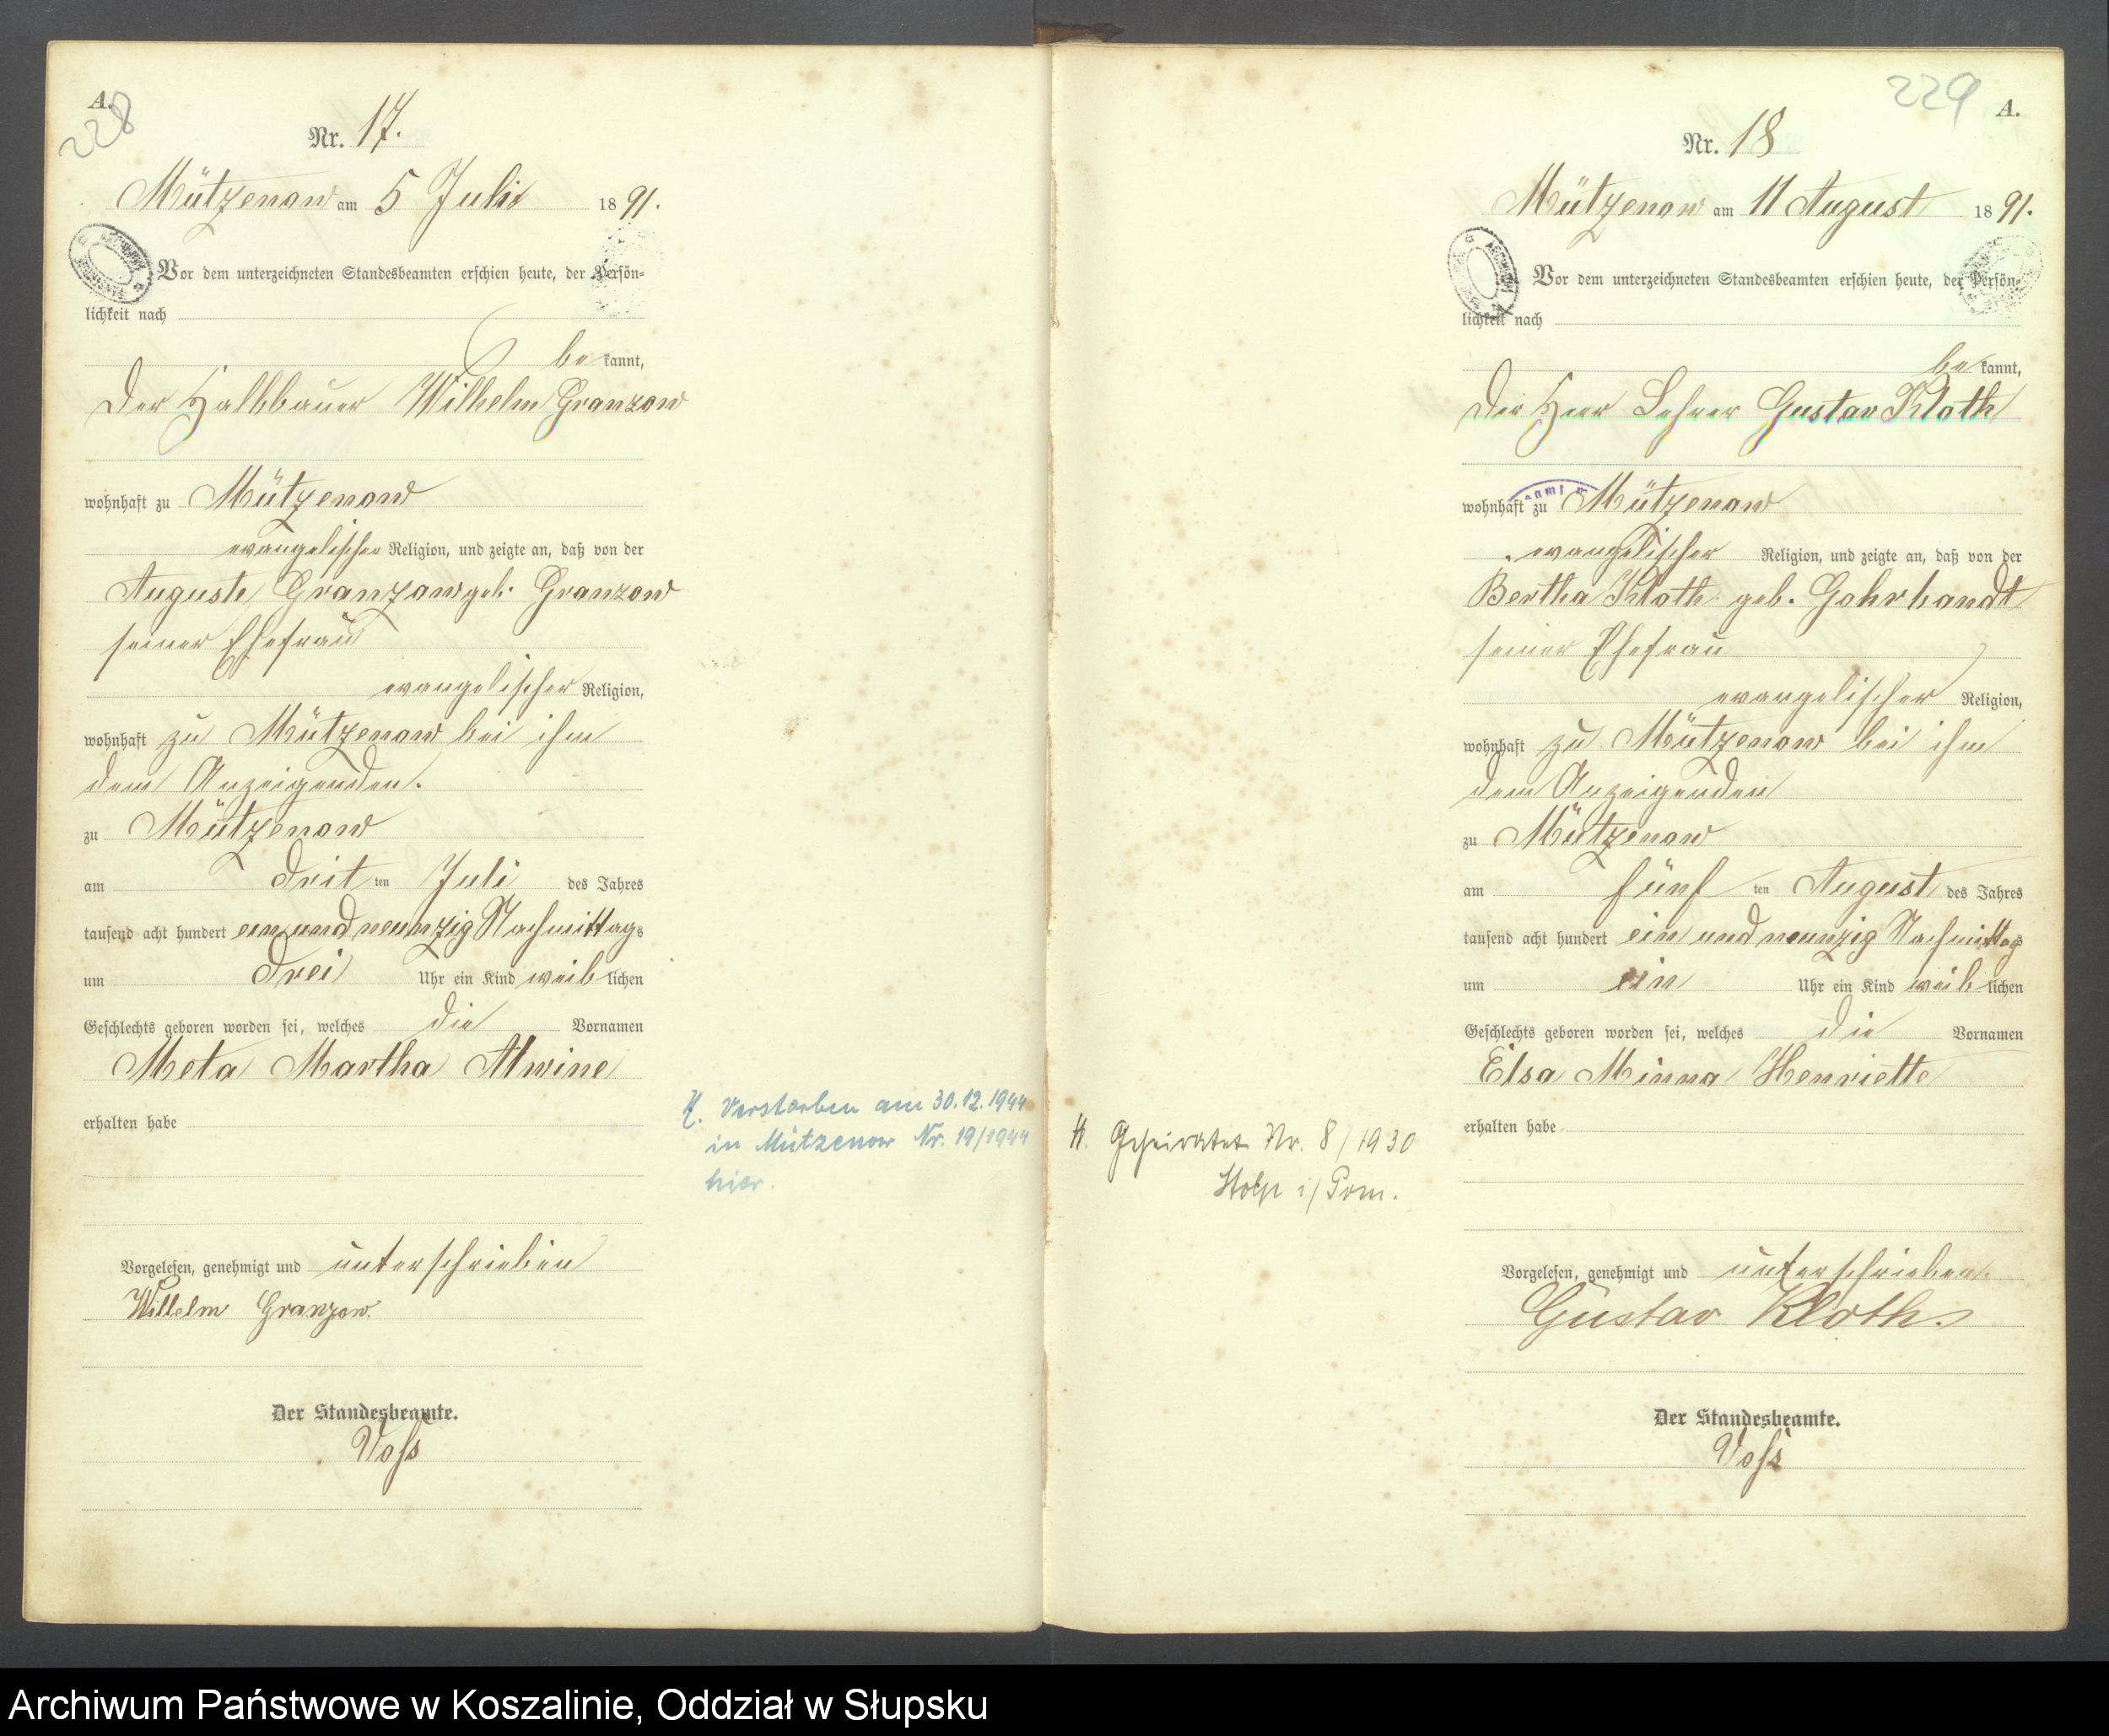 A.
228
Nr. 17.
Mützenow am 5 Juli 1891.
Vor dem unterzeichneten Standesbeamten erschien heute, der Persön-
lichkeit nach
bekannt,
der Halbbauer Wilhelm Granzow
wohnhaft zu Mützenow
evangelischer Religion, und zeigte an, daß von der
Auguste Granzow geb. Granzow
seiner Ehefrau
evangelischer Religion,
wohnhaft zu Mützenow bei ihm
dem Anzeigenden.
zu Mützenow
am dritten Juli des Jahres
tausend acht hundert ein und neunzig Nachmittags
um drei Uhr ein Kind weiblichen
Geschlechts geboren worden sei, welches die Vornamen
Meta Martha Alwine
erhalten habe
Vorgelesen, genehmigt und unterschrieben
Wilhelm Granzow.
Der Standesbeamte.
Voss
H. Verstorben am 30.12.1944
in Mützenow Nr. 19/1944
hier.
229 A.
Nr. 18
Mützenow am 11 August 1891.
Vor dem unterzeichneten Standesbeamten erschien heute, der Persön-
lichkeit nach
bekannt,
der Herr Lehrer Gustav Kloth
wohnhaft zu Mützenow
evangelischer Religion, und zeigte an, daß von der
Bertha Kloth geb. Gohrbandt
seiner Ehefrau
evangelischer Religion,
wohnhaft zu Mützenow bei ihm
dem Anzeigenden
zu Mützenow
am fünften August des Jahres
tausend acht hundert ein und neunzig Nachmittags
um ein Uhr ein Kind weiblichen
Geschlechts geboren worden sei, welches die Vornamen
Elsa Minna Henriette
erhalten habe
H. Geheiratet Nr. 8/1930
Stolp i/Pom.
Vorgelesen, genehmigt und unterschrieben.
Gustav Kloth.
Der Standesbeamte.
Voss
Archiwum Państwowe w Koszalinie, Oddział w Słupsku